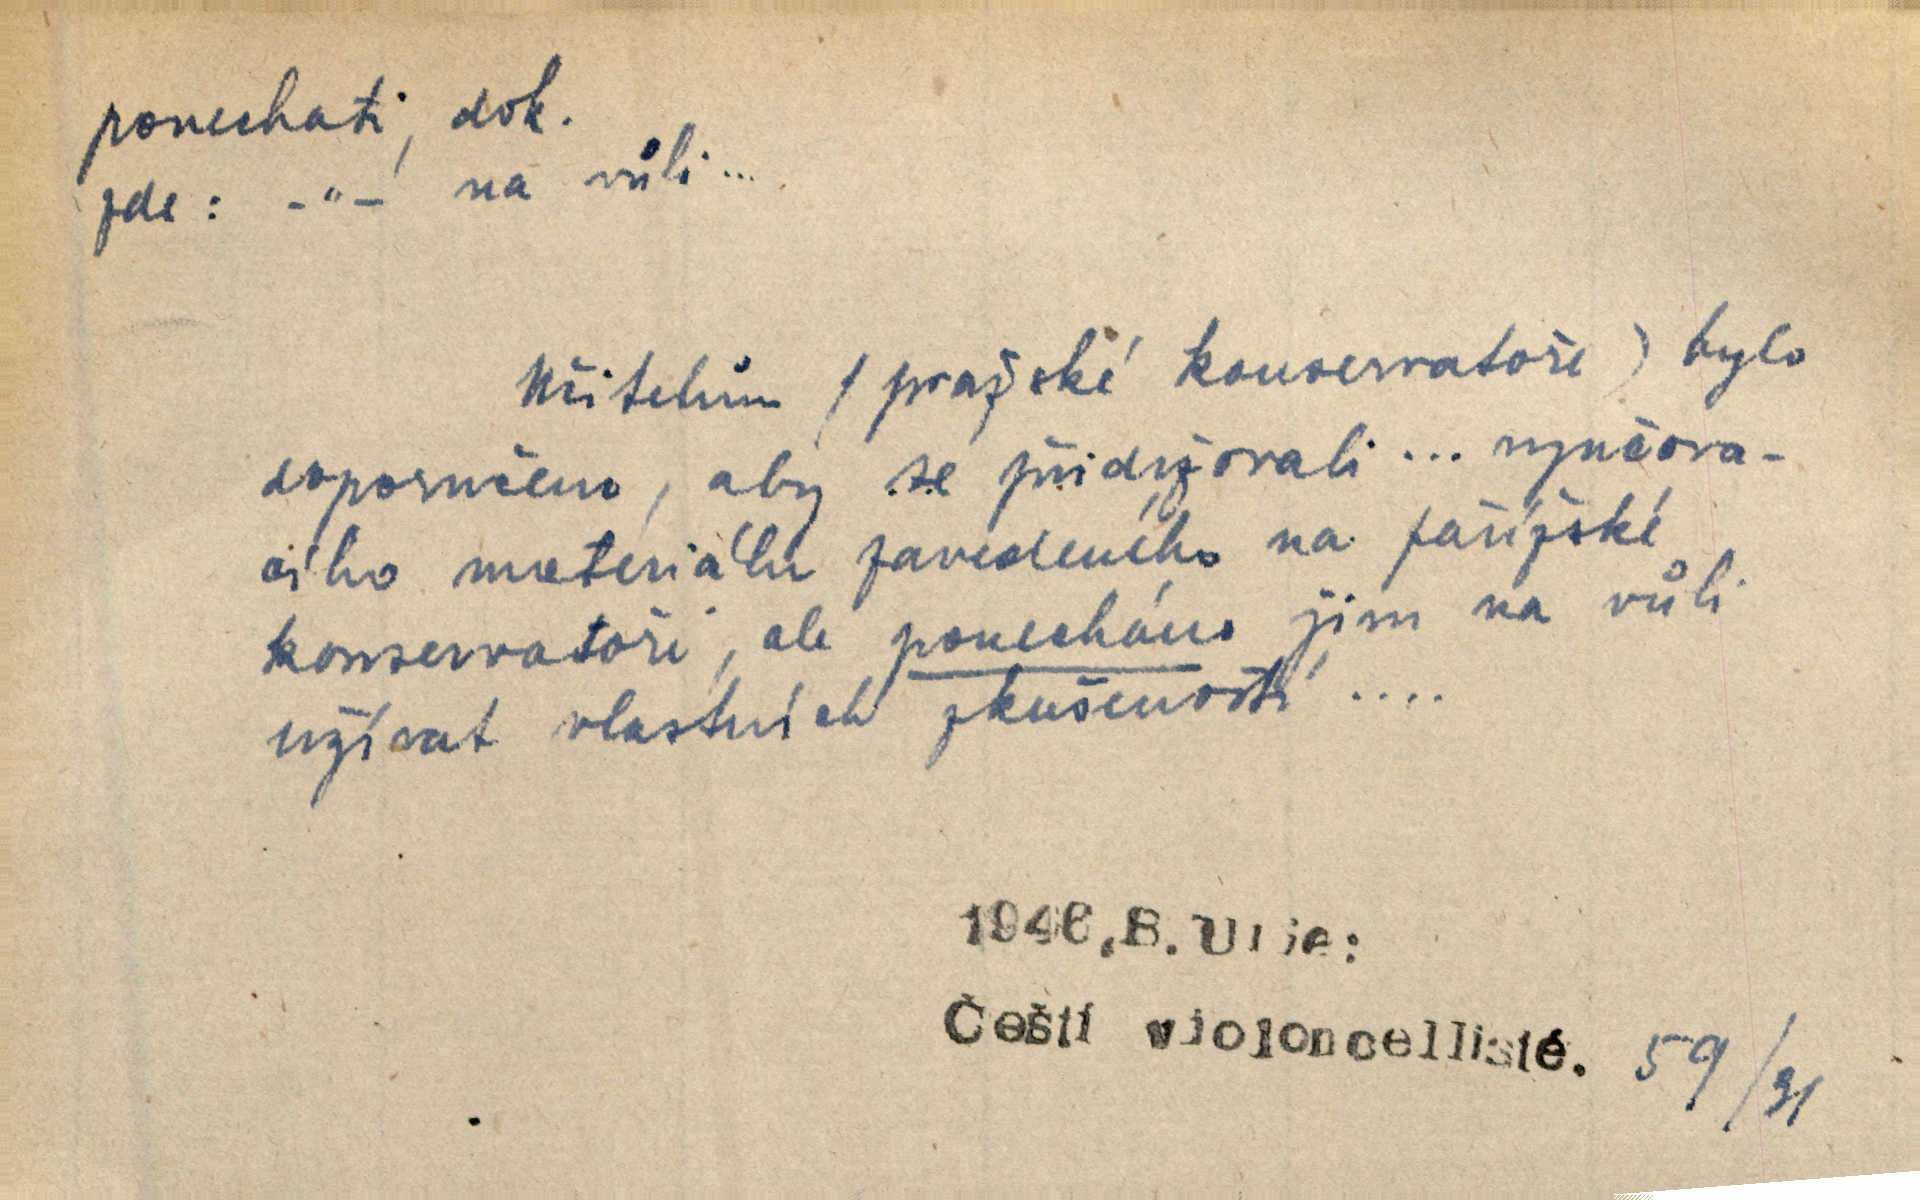 ponechati, dok.
zde: -"- na vůli ...
Učitelům (pražské konservatoře) bylo
doporučeno, aby se přidržovali ... vyučova-
cího materiálu zavedeného na pařížské
konservatoři, ale ponecháno jim na vůli
užívat vlastních zkušeností ....
1946, B. Urie:
Čeští violoncellisté. 59/31